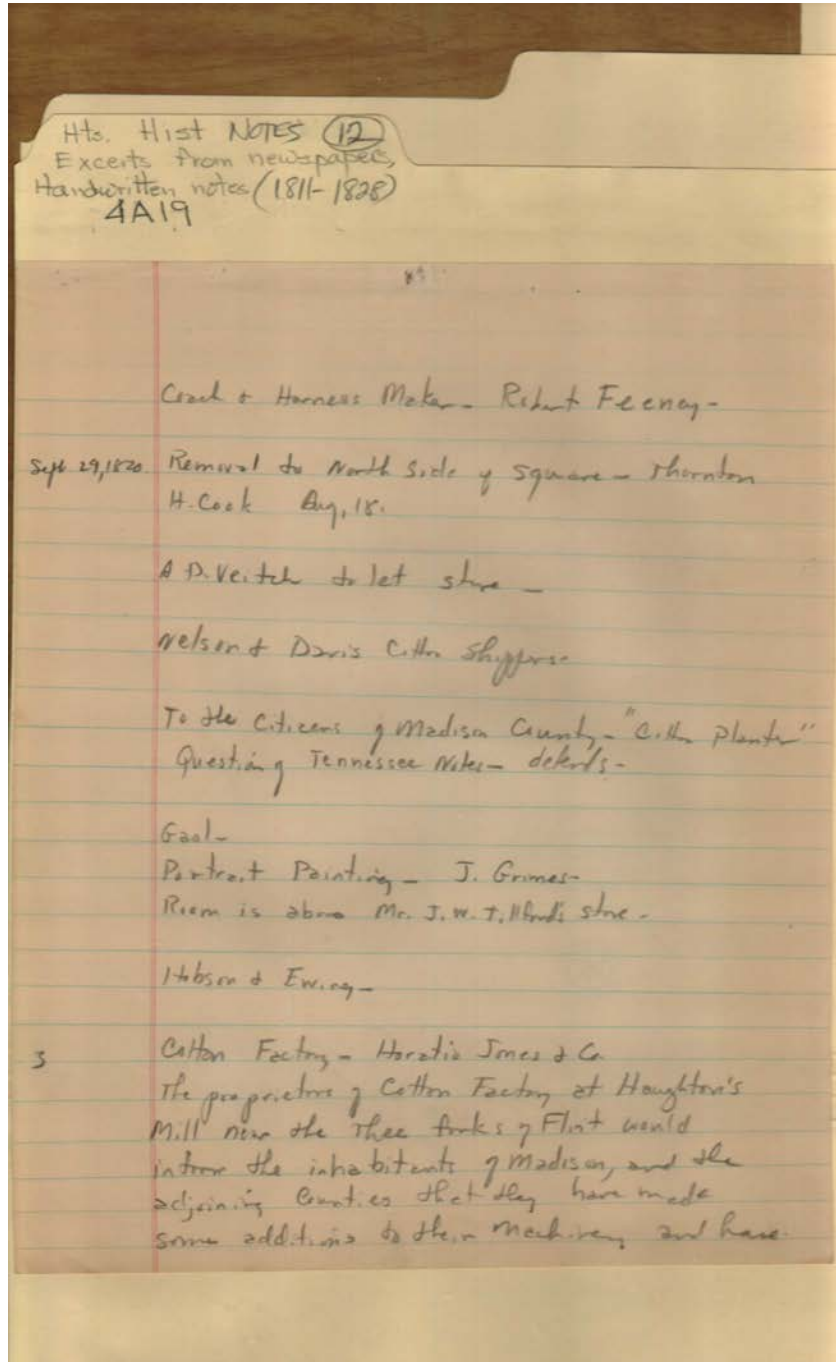 Hts. Hist NOTES 12
Excerts from newspapers,
Handwritten notes (1811-1828)
4A19
Coach & Harness Maker - Robert Feeney -
Sept 29, 1820 Removal to North Side of Square - Thornton
H. Cook Aug, 18.
A D. Veitch to let store -
Nelson & Davis Cotton Shippers -
To the Citizens of Madison County - "Cotton Planter"
Question of Tennessee Notes - defends -
Gaol -
Portrait Painting - J. Grimes -
Room is above Mr. J. W. Tilford's store -
Hobson & Ewing -
3 Cotton Factory - Horatio Jones & Co
The proprietors of Cotton Factory at Haughton's
Mill near the Thee forks of Flint would
inform the inhabitants of Madison, and the
adjoining Counties that they have made
some additions to their Machinery and have